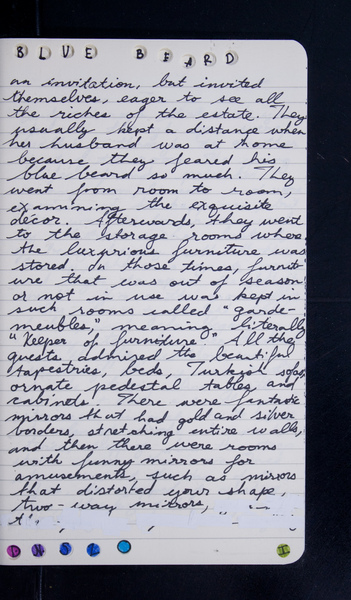 BLUE BEARD
an invitation, but invited
themselves, eager to see all
the riches of the estate. They
usually kept a distance when
her husband was at home
because they feared his
blue beard so much. They
went from room to room,
examining the exquisite
décor. Afterwards, they went
to the storage rooms where
the luxurious furniture was
stored, in those times, furnit-
ure that was out of season
or not in use was kept in
such rooms called "garde-
meubles," meaning literally
"keeper of furniture". All the
guests admired the beautiful
tapestries, beds, Turkish sofas,
ornate pedestal tables, and
cabinets. There were fantastic
mirrors that had gold and silver
borders, stretching entire walls,
and then there were rooms
with funny mirrors for
amusements, such as mirrors
that distorted your shape,
two-way mirrors,